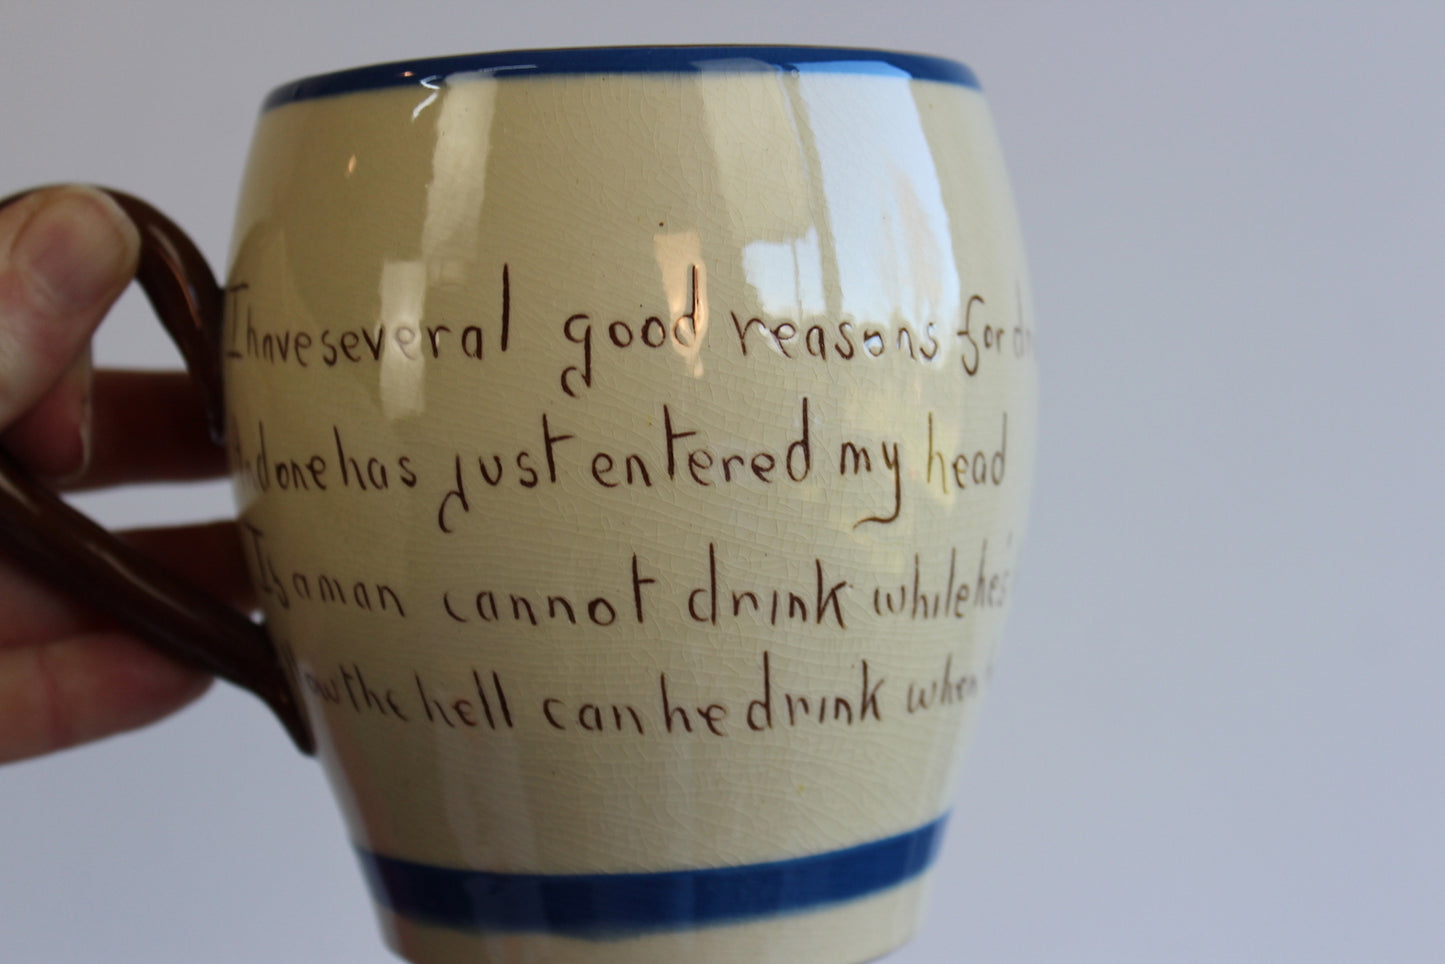 I have several good reasons for
and one has just entered my head
If a man cannot drink while he's
How the hell can he drink when